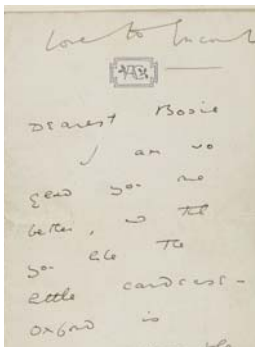 love to
Dearest Bosie
I am so
glad you are
better, and that
you like the
little cardcase -
Oxford is